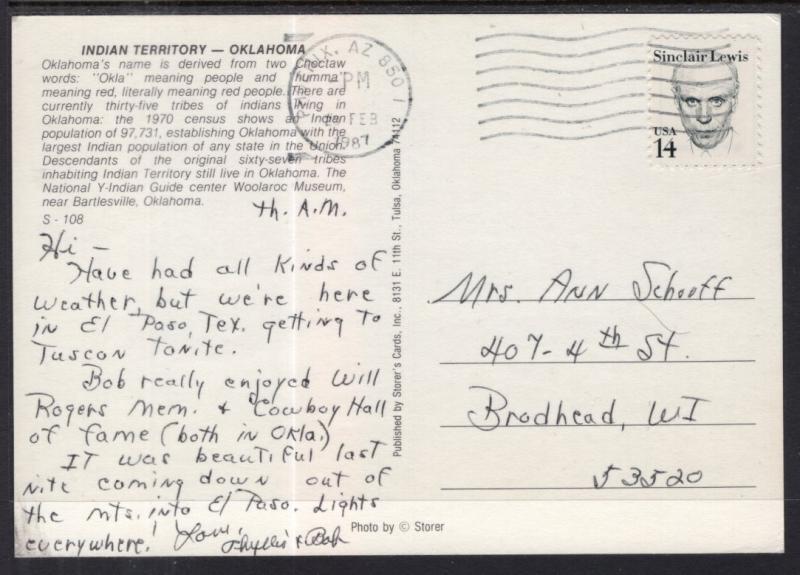 INDIAN TERRITORY — OKLAHOMA
Oklahoma's name is derived from two Choctaw
words: "Okla" meaning people and "humma"
meaning red, literally meaning red people. There are
currently thirty-five tribes of indians living in
Oklahoma: the 1970 census shows an Indian
population of 97,731, establishing Oklahoma with the
largest Indian population of any state in the Union.
Descendants of the original sixty-seven tribes
inhabiting Indian Territory still live in Oklahoma. The
National Y-Indian Guide center Woolaroc Museum,
near Bartlesville, Oklahoma.
S - 108
th. A.M.
Hi —
Have had all kinds of
weather, but we're here
in El Paso, Tex. getting to
Tuscon tonite.
Bob really enjoyed Will
Rogers Mem. & Cowboy Hall
of fame (both in Okla.)
It was beautiful last
nite coming down out of
the mts. into El Paso. Lights
everywhere! Love,
Phyllis & Bob
Published by Storer's Cards, Inc., 8131 E. 11th St., Tulsa, Oklahoma 74112
AZ 850
PM
FEB
1987
Sinclair Lewis
USA
14
Mrs. Ann Schooff
407-4th St.
Brodhead, WI
53520
Photo by © Storer